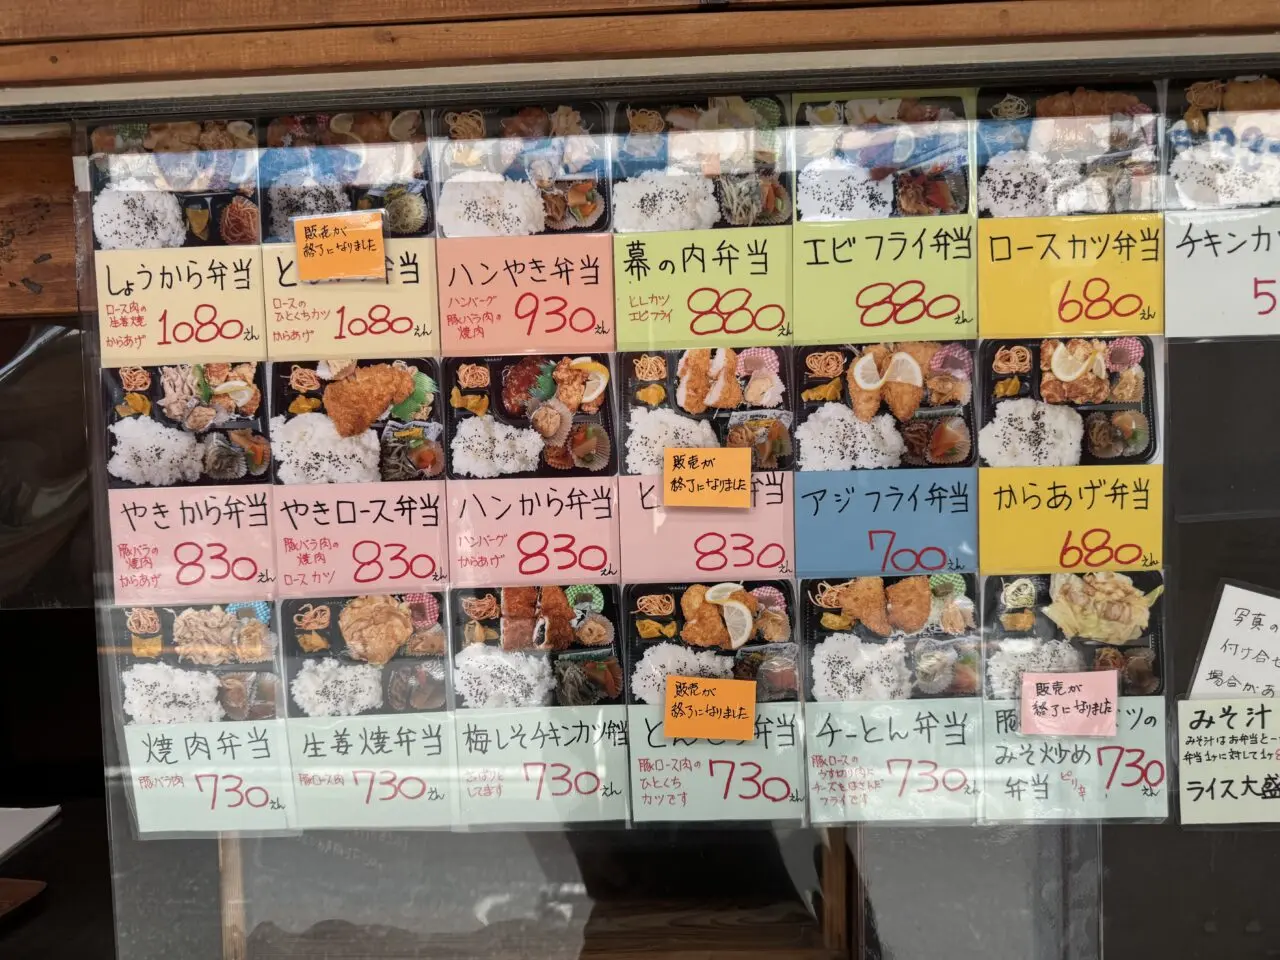 しょうから弁当
ロース肉の
生姜焼
からあげ
1080えん
販売が
終了になりました
と
弁当
ロースの
ひとくちカツ
からあげ
1080えん
ハンやき弁当
ハンバーグ
豚バラ肉の
焼肉
930えん
幕の内弁当
ヒレカツ
エビフライ
880えん
エビフライ弁当
880えん
ロースカツ弁当
680えん
チキンカ
5
やきから弁当
豚バラの
焼肉
からあげ
830えん
やきロース弁当
豚バラ肉の
焼肉
ロースカツ
830えん
ハンから弁当
ハンバーグ
からあげ
830えん
販売が
終了になりました
弁当
830えん
アジフライ弁当
700えん
からあげ弁当
680えん
焼肉弁当
豚バラ肉
730えん
生姜焼弁当
豚ロース肉
730えん
梅しそチキンカツ弁当
さっぱりと
してます
730えん
販売が
終了になりました
とん
弁当
豚ロース肉の
ひとくち
カツです
730えん
チーとん弁当
豚ロースの
うす切り肉に
チーズをはさんだ
フライです
730えん
販売が
終了になりました
豚
ツの
みそ炒め
弁当
ピリ辛
730えん
写真の
付け合せ
場合があ
みそ汁
みそ汁はお弁当と一
弁当1ヶに対して1ヶと
ライス大盛